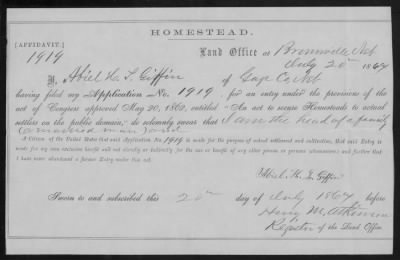 HOMESTEAD.
[AFFIDAVIT.]
1919
Land Office at Brownville Neb
July 20th 1867
I, Abiel H. L. Giffin of Gage Co Nbt
having filed my Application No. 1919, for an entry under the provisions of the
act of Congress approved May 20, 1862, entitled "An act to secure Homesteads to actual
settlers on the public domain," do solemnly swear that I am the head of a family
a married man and
a Citizen of the United States that said Application No. 1919 is made for the purpose of actual settlement and cultivation; that said Entry is
made for my own exclusive benefit and not directly or indirectly for the use or benefit of any other person or persons whomsoever; and further that
I have never abandoned a former Entry under this act.
Abiel H. L. Giffin
Sworn to and subscribed this 20th day of July 1867 before
Henry M. Atkinson
Register of the Land Office.